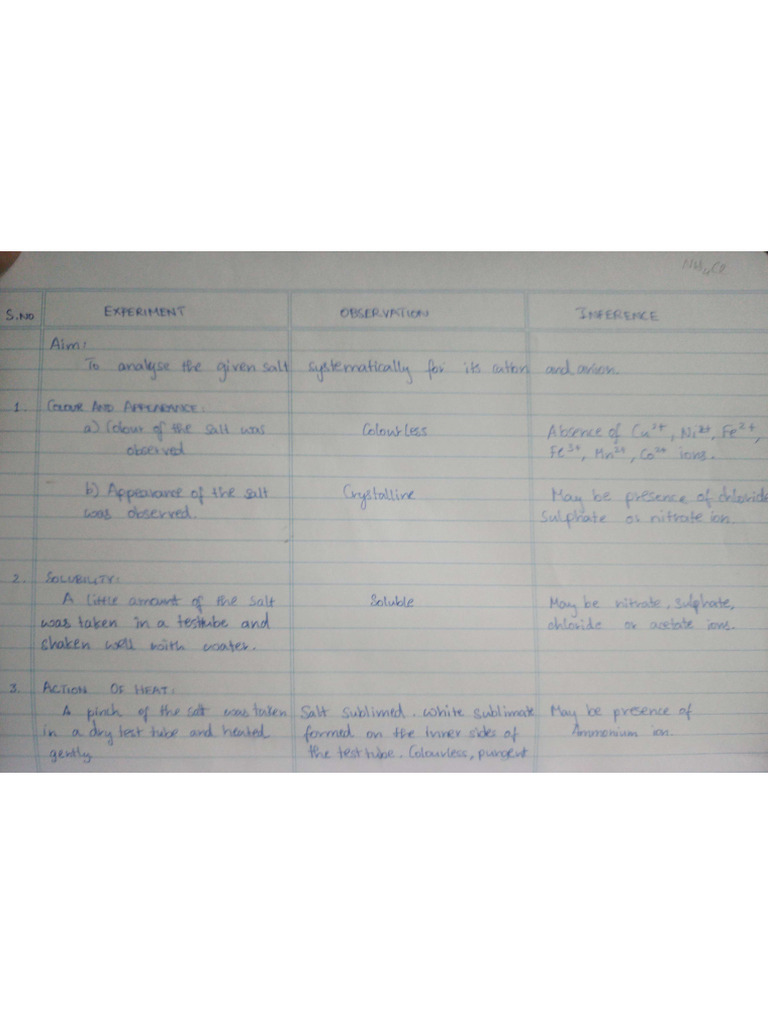 NH4Cl
S.NO EXPERIMENT OBSERVATION INFERENCE
Aim:
To analyse the given salt systematically for its cation and anion.
1. COLOUR AND APPEARANCE:
a) Colour of the salt was Colourless Absence of Cu2+, Ni2+, Fe2+,
observed Fe3+, Mn2+, Co2+ ions.
b) Appearance of the salt Crystalline May be presence of chloride
was observed. sulphate or nitrate ion.
2. SOLUBILITY:
A little amount of the salt Soluble May be nitrate, sulphate,
was taken in a testtube and chloride or acetate ions.
shaken well with water.
3. ACTION OF HEAT:
A pinch of the salt was taken Salt sublimed. White sublimate May be presence of
in a dry test tube and heated formed on the inner sides of Ammonium ion.
gently the test tube. Colourless, pungent